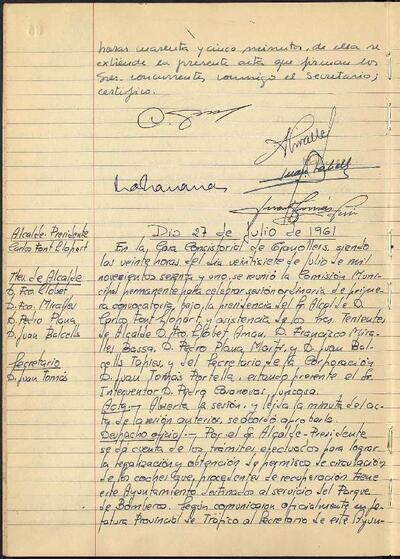 horas cuarenta y cinco minutos, de ella se
extiende la presente acta que firman los
Sres. concurrentes, conmigo el Secretario;
certifico.
Dia 27 de Julio de 1961
Alcalde-Presidente
Carlos Font Llopart
Ttes. de Alcalde
D. Fco Llobet
D. Fco. Miralles
D. Pedro Plana
D. Juan Balcells
Secretario
D. Juan Tomás
En la Casa Consistorial de Granollers, siendo
las veinte horas del dia veintisiete de Julio de mil
novecientos sesenta y uno, se reunió la Comisión Muni-
cipal permanente para celebrar sesión ordinaria de prime-
ra convocatoria, bajo la presidencia del Sr. Alcalde D.
Carlos Font Llopart y asistencia de los Sres. Tenientes
de Alcalde D. Fco Llobet Arnau, D. Francisco Mira-
lles Bassa, D. Pedro Plana y D. Juan Bal-
cells Tapies, y del Secretario de la Corporación
D. Juan Tomás Portella, estando presente el Sr.
Interventor D. Pedro Casanovas Juncosa.
Acta.- Abierta la sesión, y leida la minuta del ac-
ta de la sesión anterior, se acordó aprobarla.
Despacho oficial.- Por el Sr. Alcalde-Presidente
se dá cuenta de los trámites efectuados para lograr
la legalización y obtención de permisos de circulación
de los coches que, procedentes de recuperación tiene
este Ayuntamiento destinados al servicio del Parque
de Bomberos. Según comunican oficialmente en Je-
fatura Provincial de Tráfico al Secretario de este Ayun-